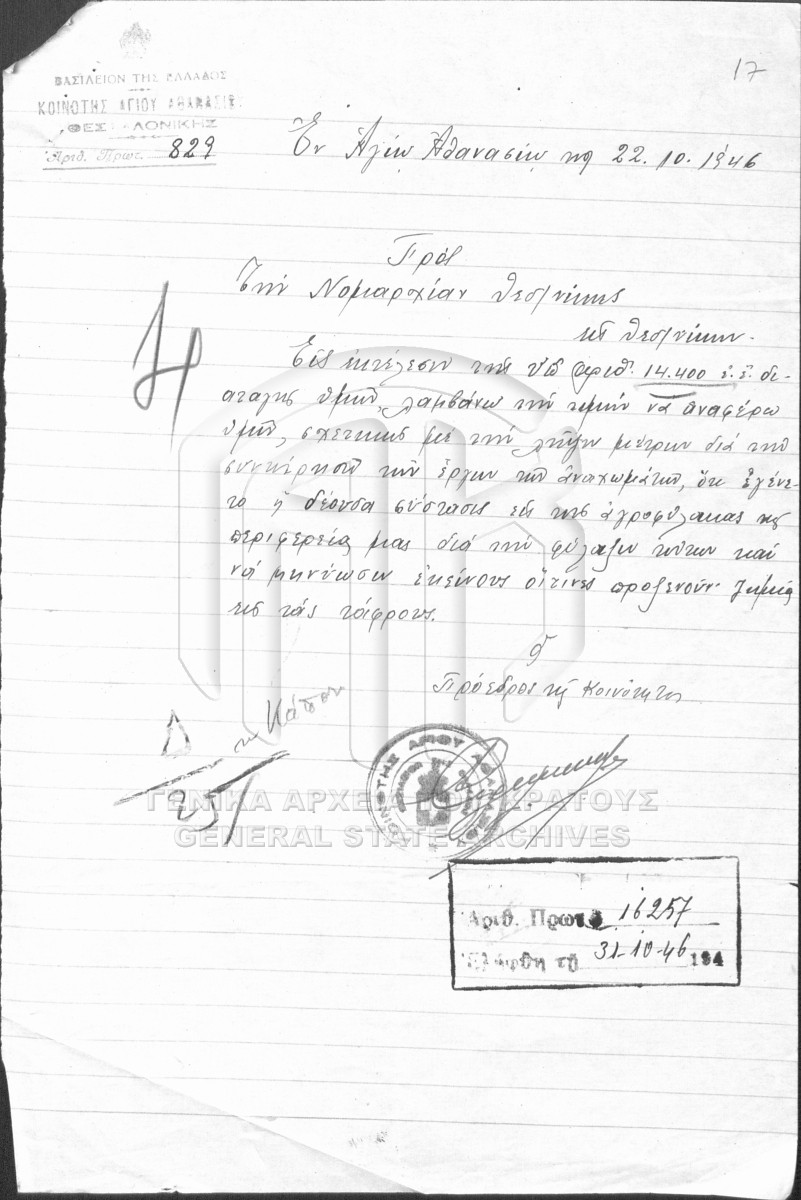 17
ΒΑΣΙΛΕΙΟΝ ΤΗΣ ΕΛΛΑΔΟΣ
ΚΟΙΝΟΤΗΣ ΑΓΙΟΥ ΑΘΑΝΑΣΙΟΥ
ΘΕΣΣΑΛΟΝΙΚΗΣ
Ἀριθ. Πρωτ. 829
Ἐν Ἁγίῳ Ἀθανασίῳ τῇ 22.10.1946
Πρός
Τὴν Νομαρχίαν Θεσ/νίκης
Θεσ/νίκην.
Εἰς ἐκτέλεσιν τῆς ὑπ' ἀριθ. 14.400 ἐ.ἔ. δι-
αταγῆς ὑμῶν, λαμβάνω τὴν τιμὴν νὰ ἀναφέρω
ὑμῖν, σχετικῶς μὲ τὴν λῆψιν μέτρων διὰ τὴν
συντήρησιν τῶν ἔργων τῶν ἀναχωμάτων, ὅτι ἐγένε-
το ἡ δέουσα σύστασις εἰς τοὺς ἀγροφύλακας τῆς
περιφερείας μας διὰ τὴν φύλαξιν τούτων καὶ
νὰ μηνύωσιν ἐκείνους οἵτινες προξενοῦν ζημίας
εἰς τὰς τάφρους.
Ὁ
Πρόεδρος τῆς Κοινότητος
Δ
25/
ΓΕΝΙΚΑ ΑΡΧΕΙΑ ΤΟΥ ΚΡΑΤΟΥΣ
GENERAL STATE ARCHIVES
Ἀριθ. Πρωτ. 16257
Ἐλήφθη τῇ 31-10-46 194